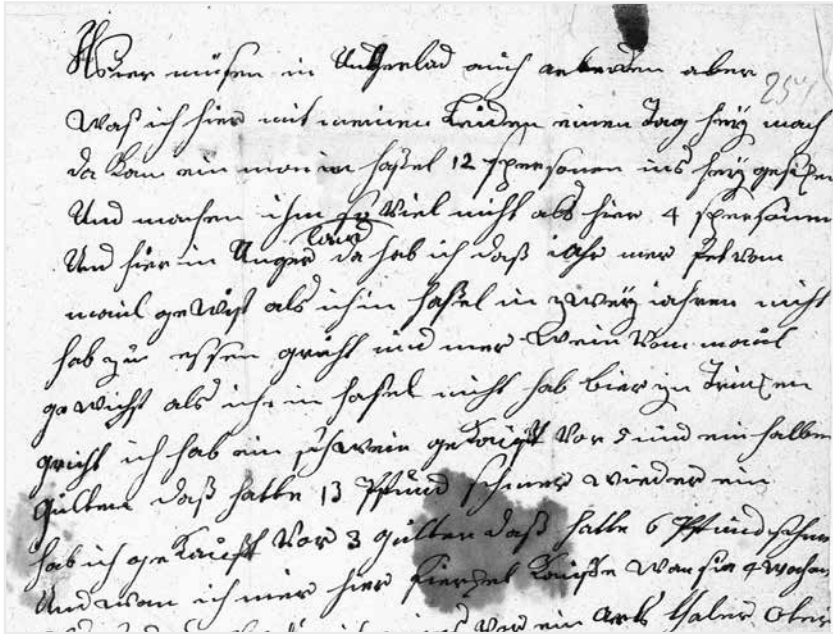 Wier müsen in Ungerlad auch arbeiden aber
25
Waß ich hier mit meinen Leiden einen Tag heÿ mach
da kan ein man in haßel 12 spersonen ins heÿ
Und machen ihm so viel nicht alß hier 4 spersonen
land
Und hier in Unger da hab ich daß iahr mer fet vom
maul gewist als ich in haßel in zweÿ iahren nicht
hab zu essen gricht und mer Wein vom maul
gewischt als ich in haßel nicht hab bier zu Trincken
gricht ich hab ein schwein gekauft vor 5 und ein halben
gulten daß hatte 13 Pfund schmer wieder ein
hab ich gekauft Vor 3 gulten daß hatte 6 Pfund
Und wan ich mer hier kaufte wan sie 4 wochen
vor ein thaler oter